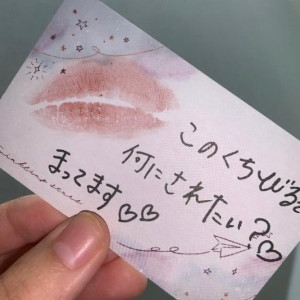 このくちびる
何にされたい?♡
まってます♡♡